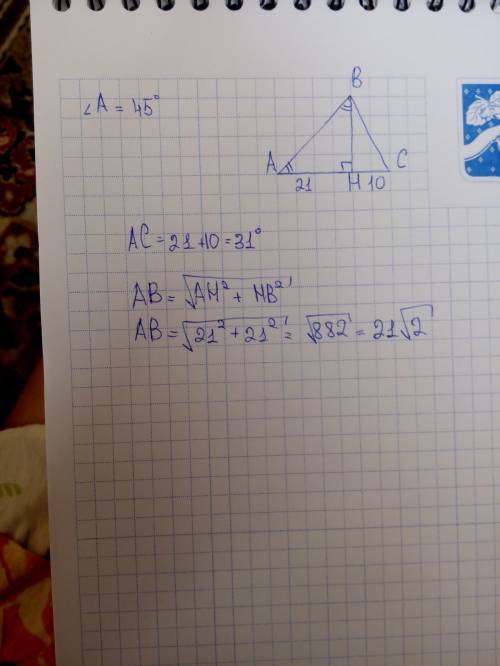 ∠A = 45°
B
A
C
21
H
10
AC = 21 + 10 = 31°
AB = √AH² + HB²
AB = √21² + 21² = √882 = 21√2